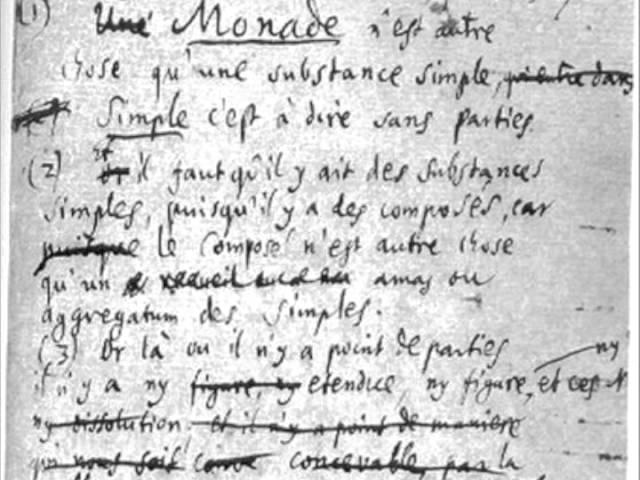 (1) Une Monade n'est autre
chose qu'une substance simple, qui entre dans
Simple c'est à dire sans parties.
(2) et il faut qu'il y ait des substances
simples, puisqu'il y a des composés, car
puisque le composé n'est autre chose
qu'un recueil amas ou
aggregatum des simples.
(3) Or là ou il n'y a point de parties ny
il n'y a ny figure, ny etendue, ny figure, et
ny dissolution, et il n'y a point de maniere
qui nous soit concevable, par la